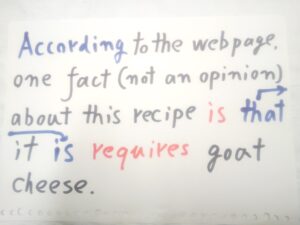 According to the webpage,
one fact (not an opinion)
about this recipe is that
it is requires goat
cheese.